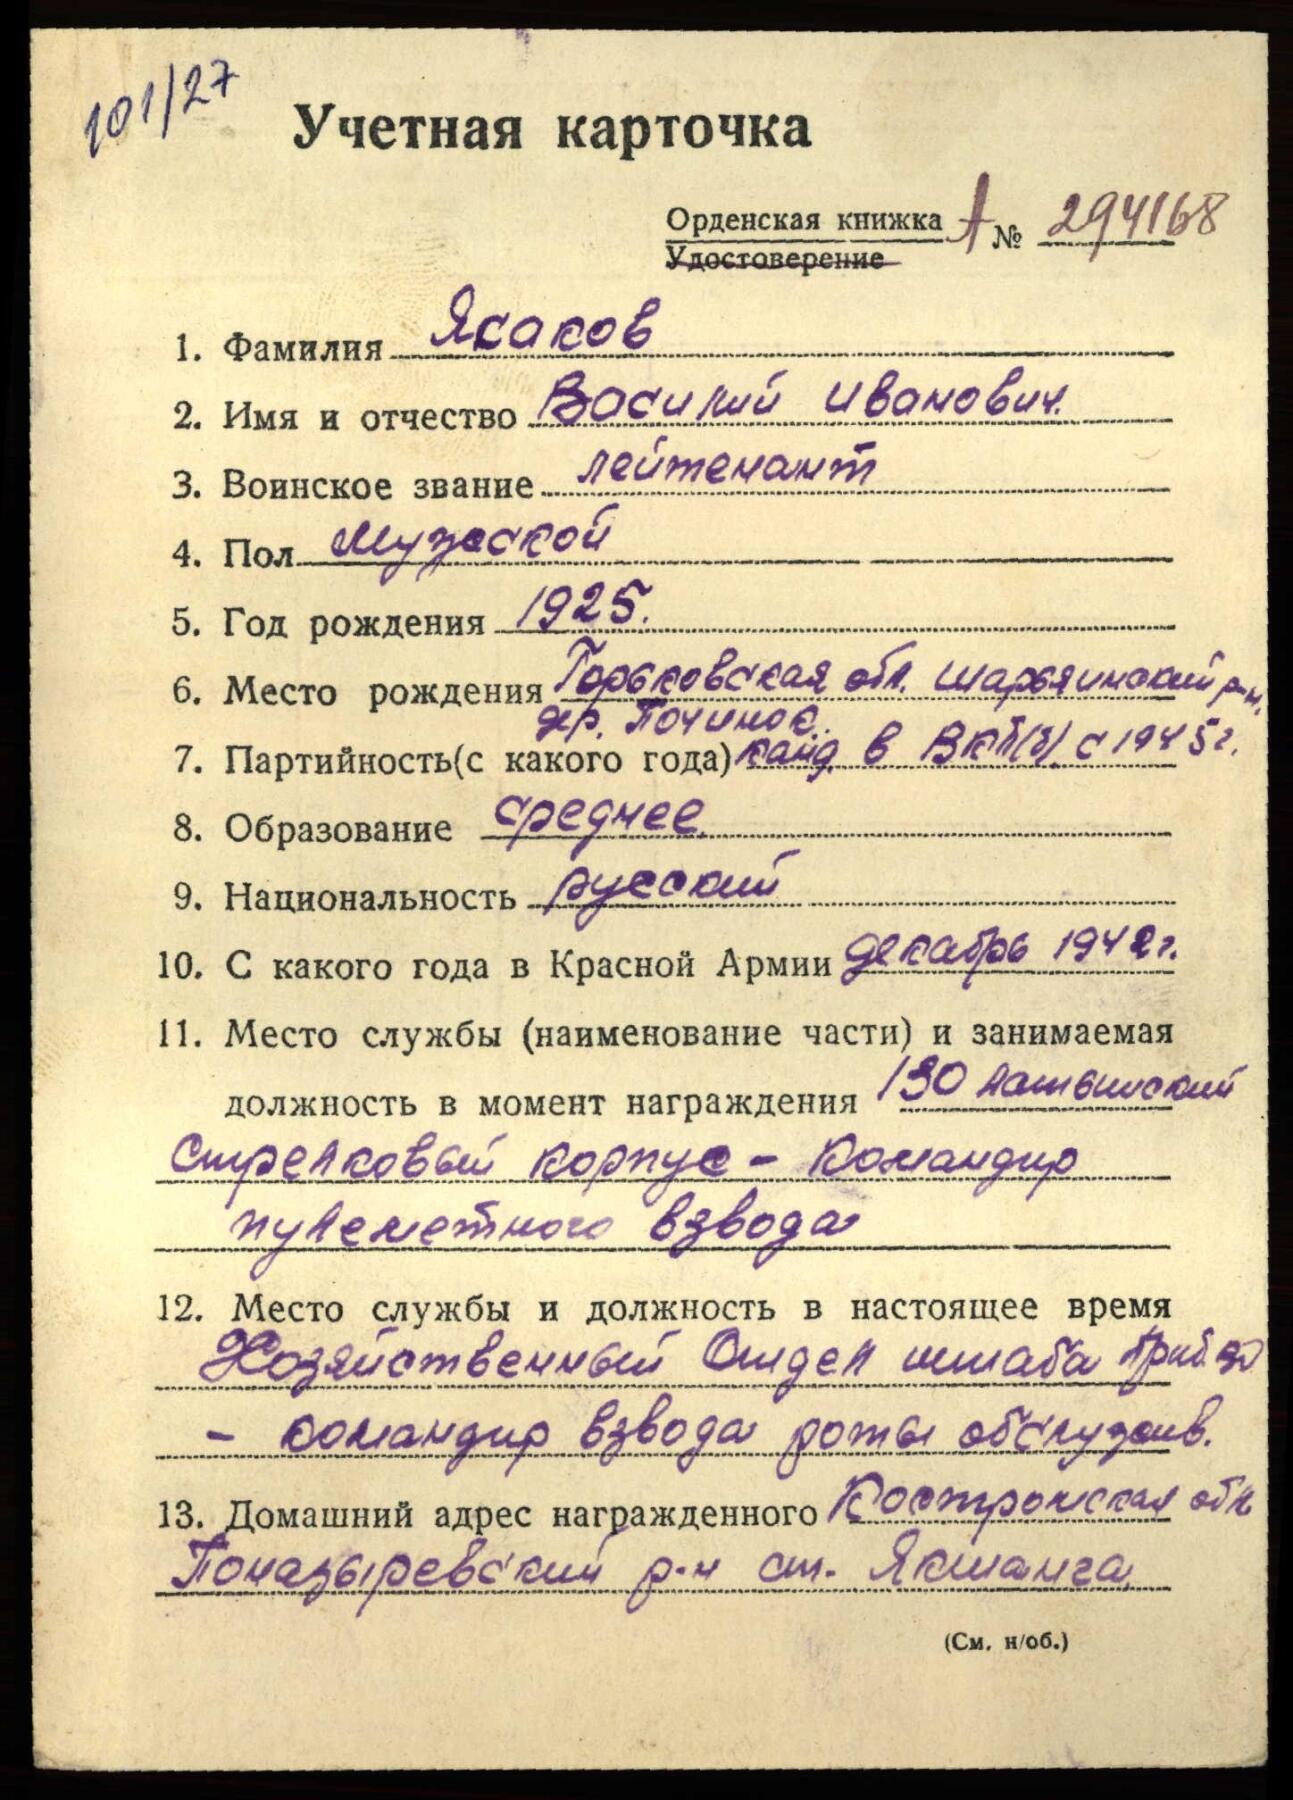 101/27
Учетная карточка
Орденская книжка А № 294168
Удостоверение
1. Фамилия Ясаков
2. Имя и отчество Василий Иванович.
3. Воинское звание лейтенант
4. Пол мужской
5. Год рождения 1925.
6. Место рождения Горьковская обл. Шарьинский р-н,
дер. Починок.
7. Партийность(с какого года) канд. в ВКП(б) с 1945г.
8. Образование среднее
9. Национальность русский
10. С какого года в Красной Армии декабрь 1942г.
11. Место службы (наименование части) и занимаемая
должность в момент награждения 130 латышский
стрелковый корпус – командир
пулеметного взвода
12. Место службы и должность в настоящее время
Хозяйственный Отдел штаба Приб.ВО
– командир взвода роты обслужив.
13. Домашний адрес награжденного Костромская обл
Поназыревский р-н ст. Якшанга,
(См. н/об.)